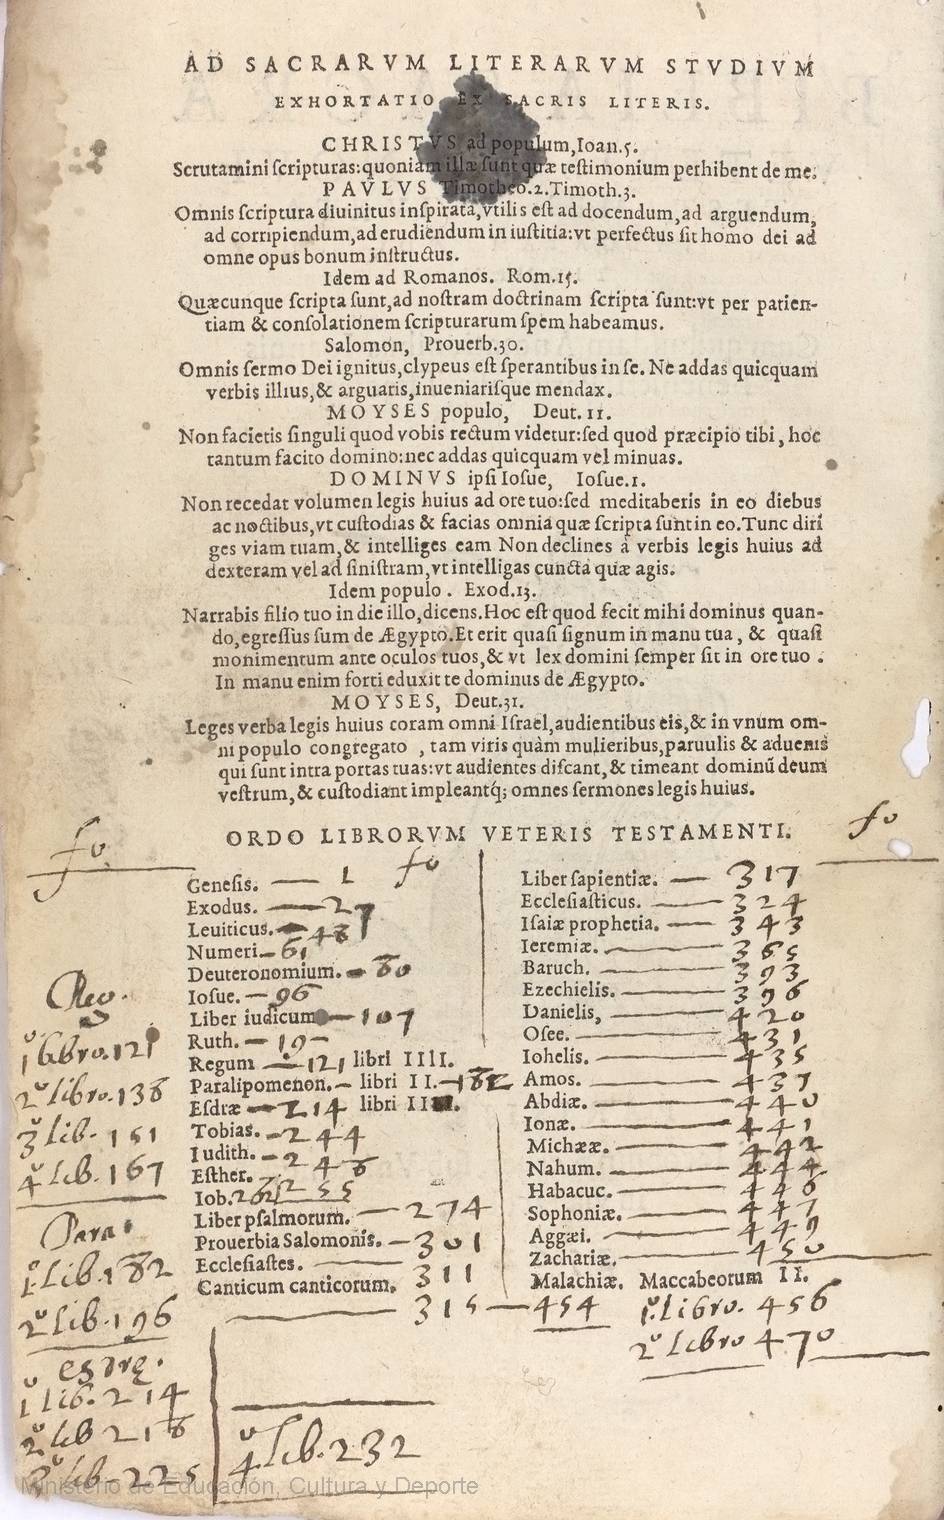 AD SACRARVM LITERARVM STVDIVM
EXHORTATIO EX SACRIS LITERIS.
CHRISTVS ad populum, Ioan.5.
Scrutamini scripturas: quoniam illæ sunt quæ testimonium perhibent de me.
PAVLVS Timotheo.2.Timoth.3.
Omnis scriptura diuinitus inspirata, vtilis est ad docendum, ad arguendum,
ad corripiendum, ad erudiendum in iustitia: vt perfectus sit homo dei ad
omne opus bonum instructus.
Idem ad Romanos. Rom.15.
Quæcunque scripta sunt, ad nostram doctrinam scripta sunt: vt per patien-
tiam & consolationem scripturarum spem habeamus.
Salomon, Prouerb.30.
Omnis sermo Dei ignitus, clypeus est sperantibus in se. Ne addas quicquam
verbis illius, & arguaris, inueniarisque mendax.
MOYSES populo, Deut. 11.
Non facietis singuli quod vobis rectum videtur: sed quod præcipio tibi, hoc
tantum facito domino: nec addas quicquam vel minuas.
DOMINVS ipsi Iosue, Iosue.1.
Non recedat volumen legis huius ad ore tuo: sed meditaberis in eo diebus
ac noctibus, vt custodias & facias omnia quæ scripta sunt in eo. Tunc diri
ges viam tuam, & intelliges eam Non declines à verbis legis huius ad
dexteram vel ad sinistram, vt intelligas cuncta quæ agis.
Idem populo. Exod.13.
Narrabis filio tuo in die illo, dicens. Hoc est quod fecit mihi dominus quan-
do, egressus sum de Ægypto. Et erit quasi signum in manu tua, & quasi
monimentum ante oculos tuos, & vt lex domini semper sit in ore tuo.
In manu enim forti eduxit te dominus de Ægypto.
MOYSES, Deut.31.
Leges verba legis huius coram omni Israel, audientibus eis, & in vnum om-
ni populo congregato, tam viris quàm mulieribus, paruulis & aduenis
qui sunt intra portas tuas: vt audientes discant, & timeant dominū deum
vestrum, & custodiant impleantq́; omnes sermones legis huius.
ORDO LIBRORVM VETERIS TESTAMENTI.
fo
fo
fo
Genesis. — 1
Exodus. — 27
Leuiticus. — 48
Numeri — 61
Deuteronomium. — 80
Iosue. — 96
Liber iudicum — 107
Ruth. — 19
Regum — 121 libri IIII.
Paralipomenon. — libri II. — 182
Esdræ — 214 libri III
Tobias. — 244
Iudith. — 248
Esther. 255
Iob. 262
Liber psalmorum. — 274
Prouerbia Salomonis. — 301
Ecclesiastes. — 311
Canticum canticorum. 315
Liber sapientiæ. — 317
Ecclesiasticus. — 324
Isaiæ prophetia. — 343
Ieremiæ. — 365
Baruch. — 393
Ezechielis. — 396
Danielis, — 420
Osee. — 431
Iohelis. — 435
Amos. — 437
Abdiæ. — 440
Ionæ. — 441
Michææ. — 442
Nahum. — 444
Habacuc. — 446
Sophoniæ. — 447
Aggæi. — 449
Zachariæ. — 450
Malachiæ. Maccabeorum II.
— 454
1º. Libro. 456
2º Libro 470
Reg.
1º libro. 121
2º libro. 138
3º lib. 151
4º lib. 167
Para.
1º. Lib. 182
2º Lib. 196
esdrę.
1º lib. 214
2º lib 218
3º lib — 225
4º lib. 232
Ministerio de Educación, Cultura y Deporte